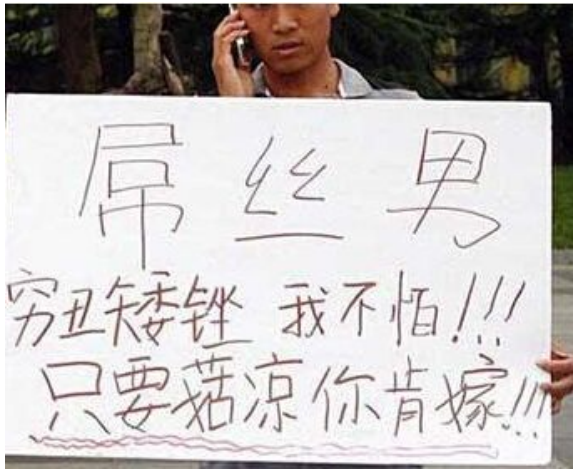 屌丝男
穷丑矮锉 我不怕!!!
只要菇凉你肯嫁!!!